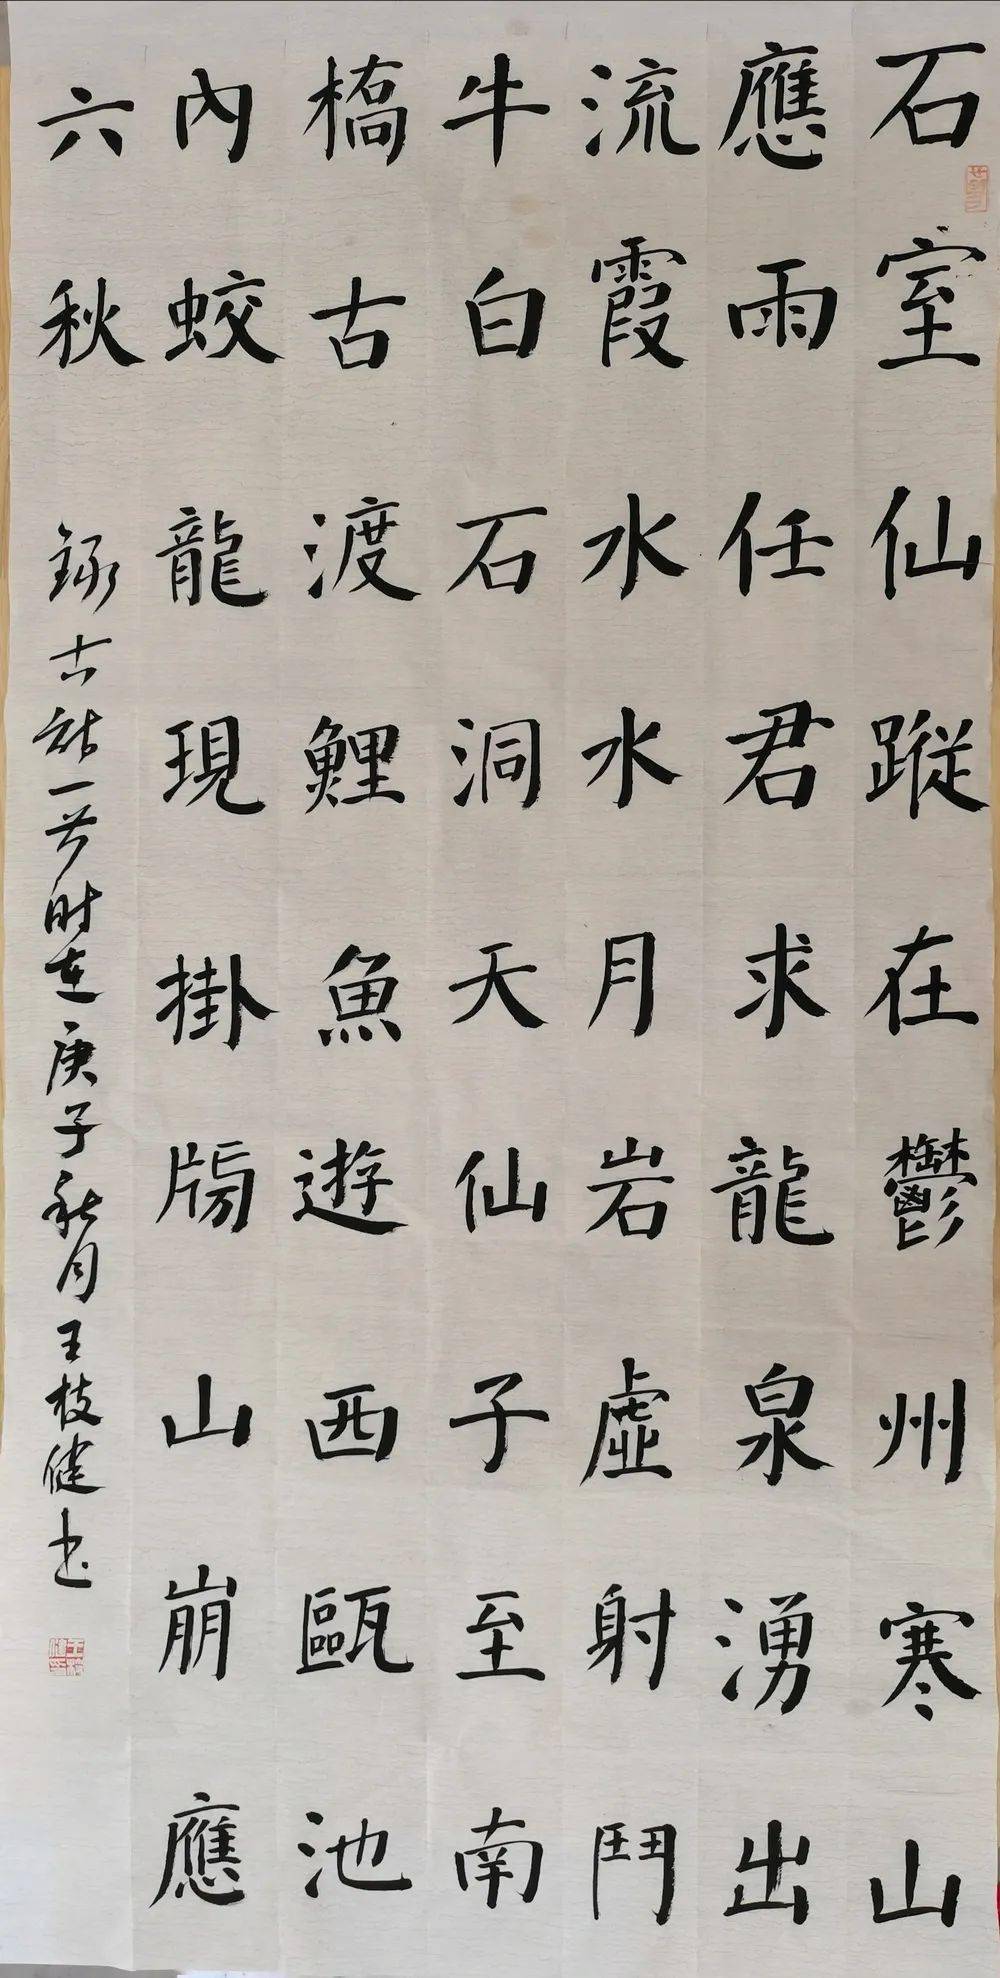 石室仙蹤在鬱州寒山
應雨任君求龍泉湧出
流霞水水月岩虛射鬥
牛白石洞天仙子至南
橋古渡鯉魚遊西甌池
內蛟龍現掛牓山崩應
六秋 錄古詩一首时在庚子秋月王枝健书